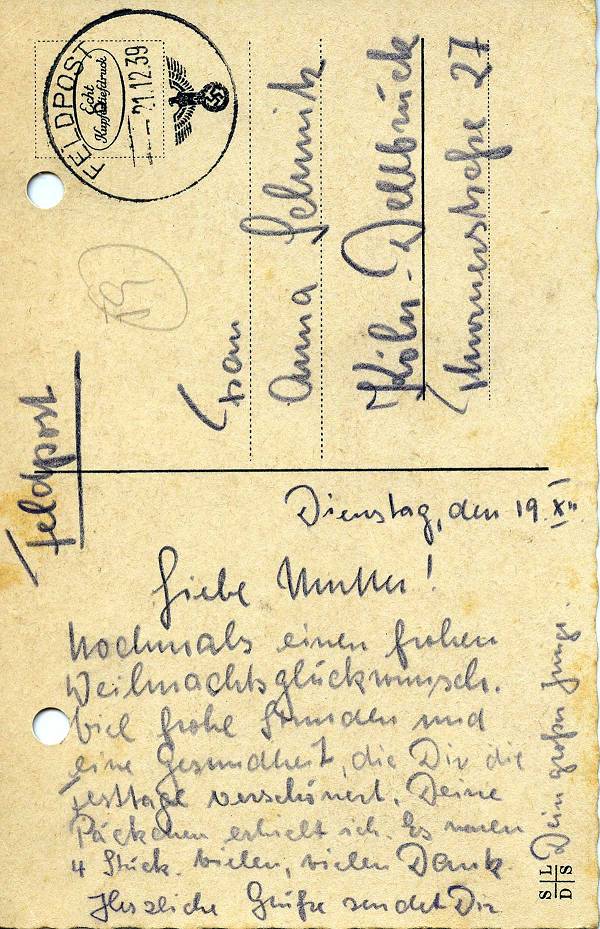 Feldpost
FELDPOST
21.12.39
Echt
Kupfertiefdruck
Frau
Anna Schmitz
Köln-Dellbrück
Thurnerstraße 27
Dienstag, den 19. XII.
Liebe Mutter!
Nochmals einen frohen
Weihnachtsglückwunsch.
Viel frohe Stunden und
eine Gesundheit, die Dir die
Festtage verschönert. Deine
Päckchen erhielt ich. Es waren
4 Stück. Vielen, vielen Dank.
Herzliche Grüße sendet Dir
Dein großer Junge.
S L
D S